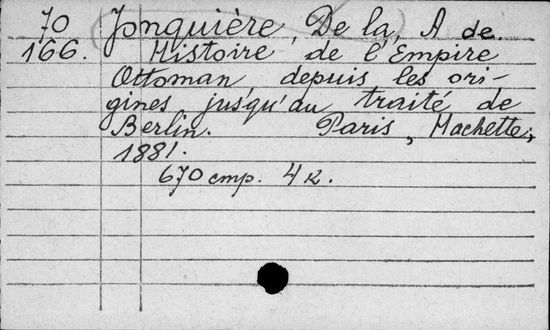 70 Jonquière, De la, A de.
166. Histoire de l'Empire
Ottoman depuis les ori-
gines jusqu'au traité de
Berlin. Paris, Hachette,
1881.
670 стр. 4 к.